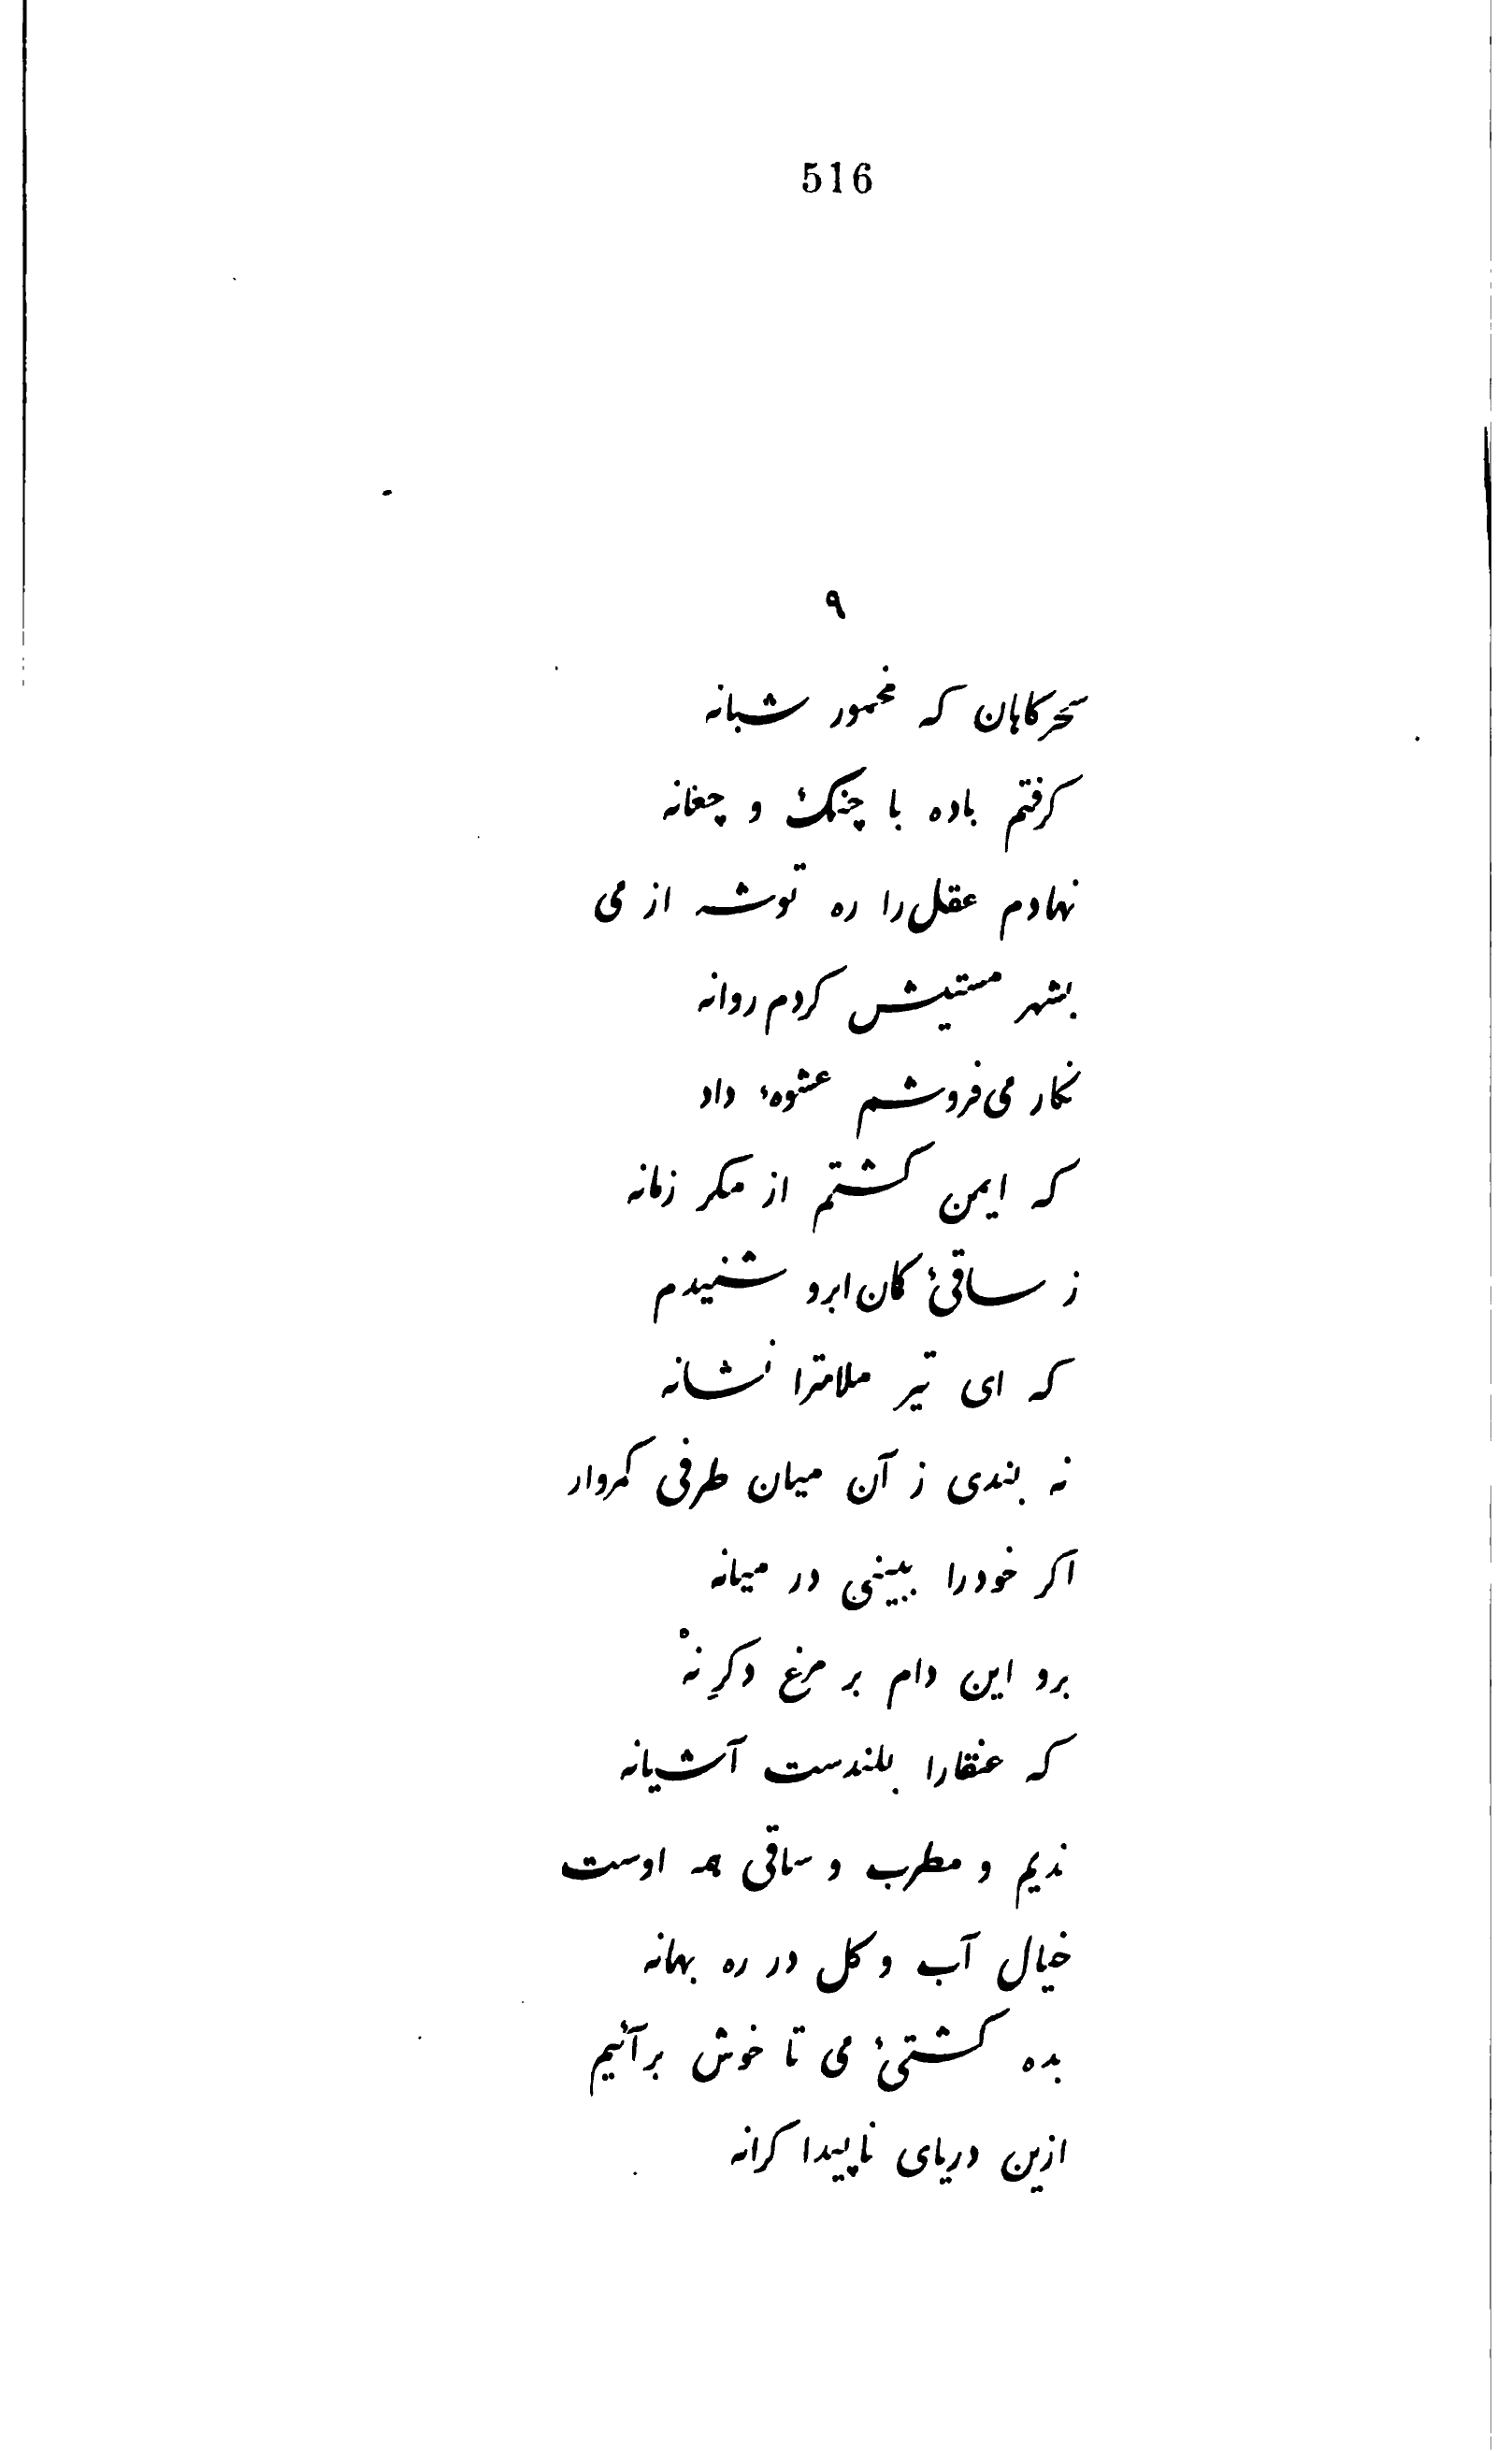 516
۹
سَحَر كاهان كه مخمور شبانه
كرفتم باده با چنكٔ و چغانه
نهادم عقل را ره توشه از می
بشهر مستیش كردم روانه
نكار می فروشم عشوهٔ داد
كه ایمن كشتم از مكر زمانه
ز ساقئ كمان ابرو شنیدم
كه ای تیر ملامترا نشانه
نه بندی ز آن میان طرفی كمروار
اكر خودرا ببینی در میانه
برو این دام بر مرغ دكرِ نهْ
كه عنقارا بلندست آشیانه
ندیم و مطرب و ساقی همه اوست
خیال آب و كل در ره بهانه
بده كشتئ می تا خوش برآئیم
ازین دریای ناپیدا كرانه